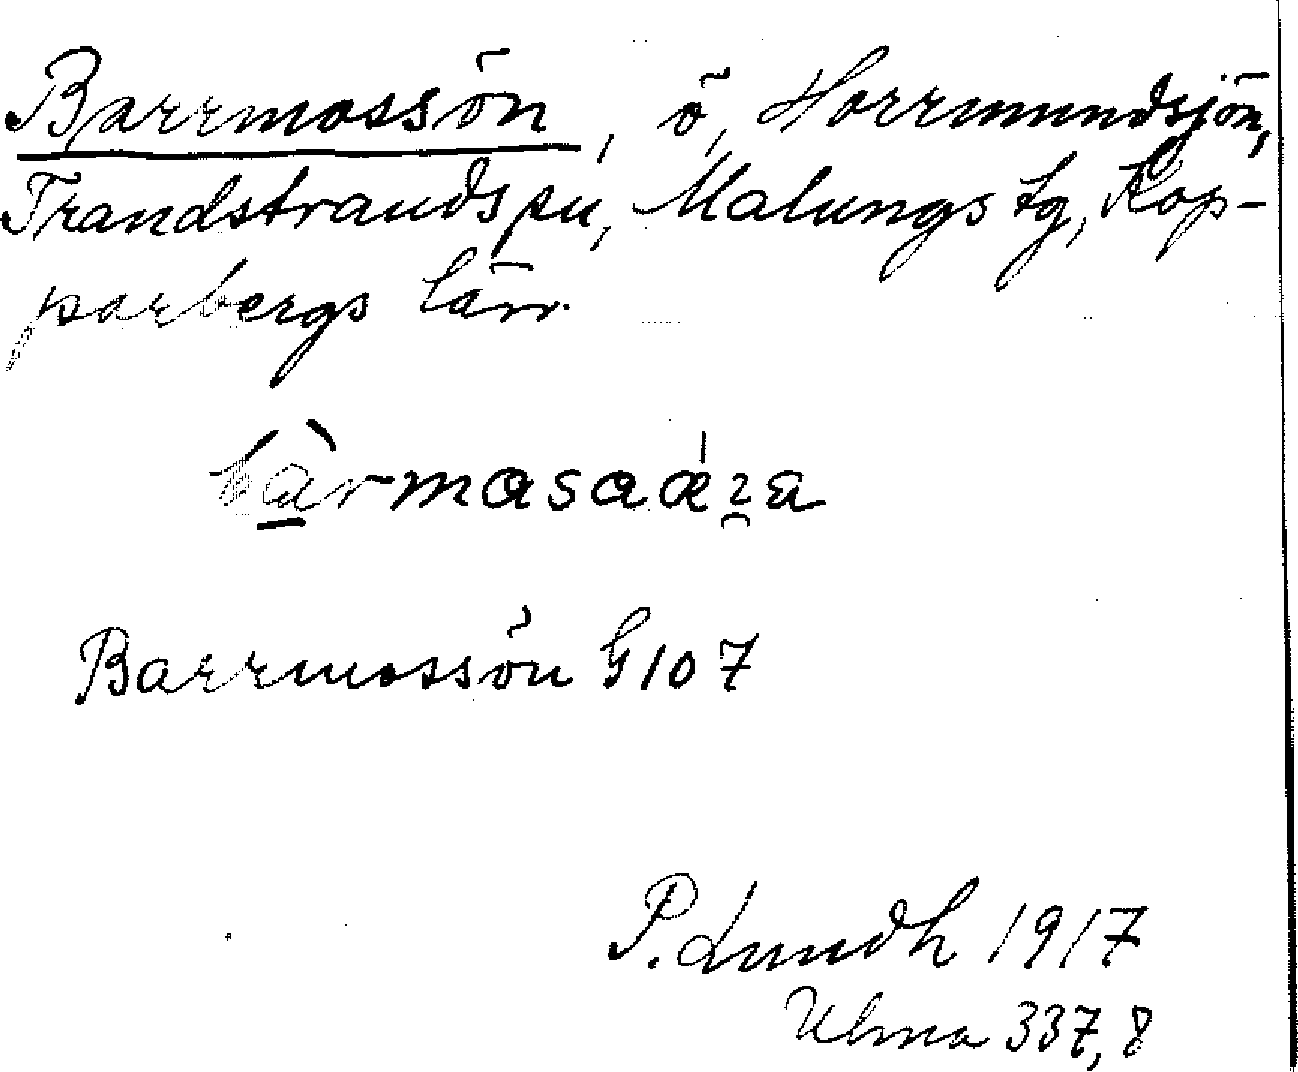 Barrmossön, ö, Horrmundsjön,
Trandstrands sn, Malungs tg, Kop-
parbergs län.
Barrmossön G 107
P. Lundh 1917
Ulma 337,8